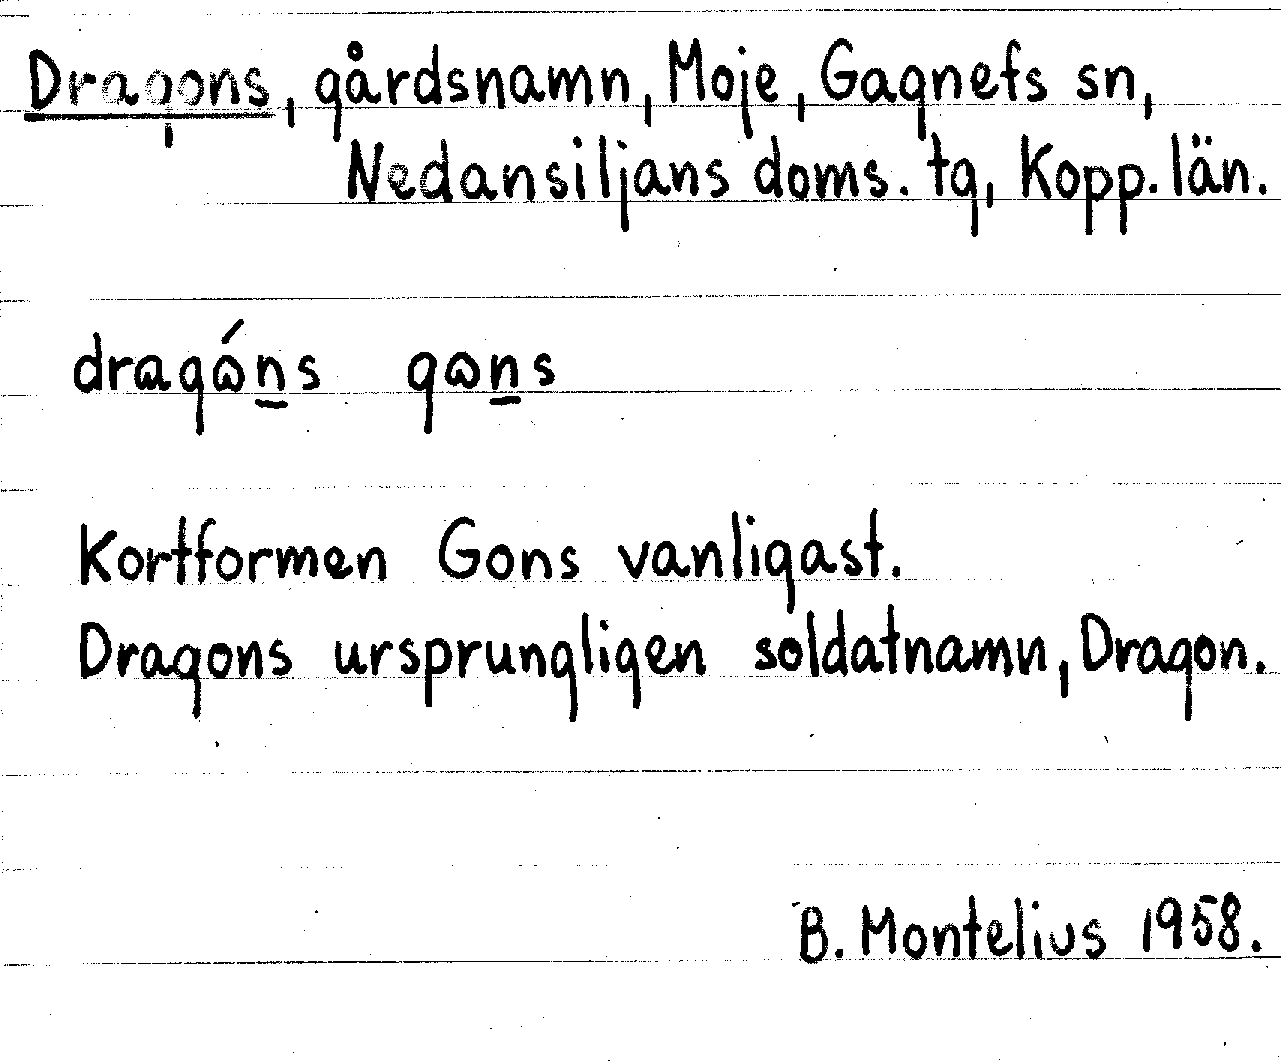 Dragons, gårdsnamn, Moje, Gagnefs sn,
Nedansiljans doms. tg, Kopp. län.
dragɷ́n̲s gɷn̲s
Kortformen Gons vanligast.
Dragons ursprungligen soldatnamn, Dragon.
B. Montelius 1958.